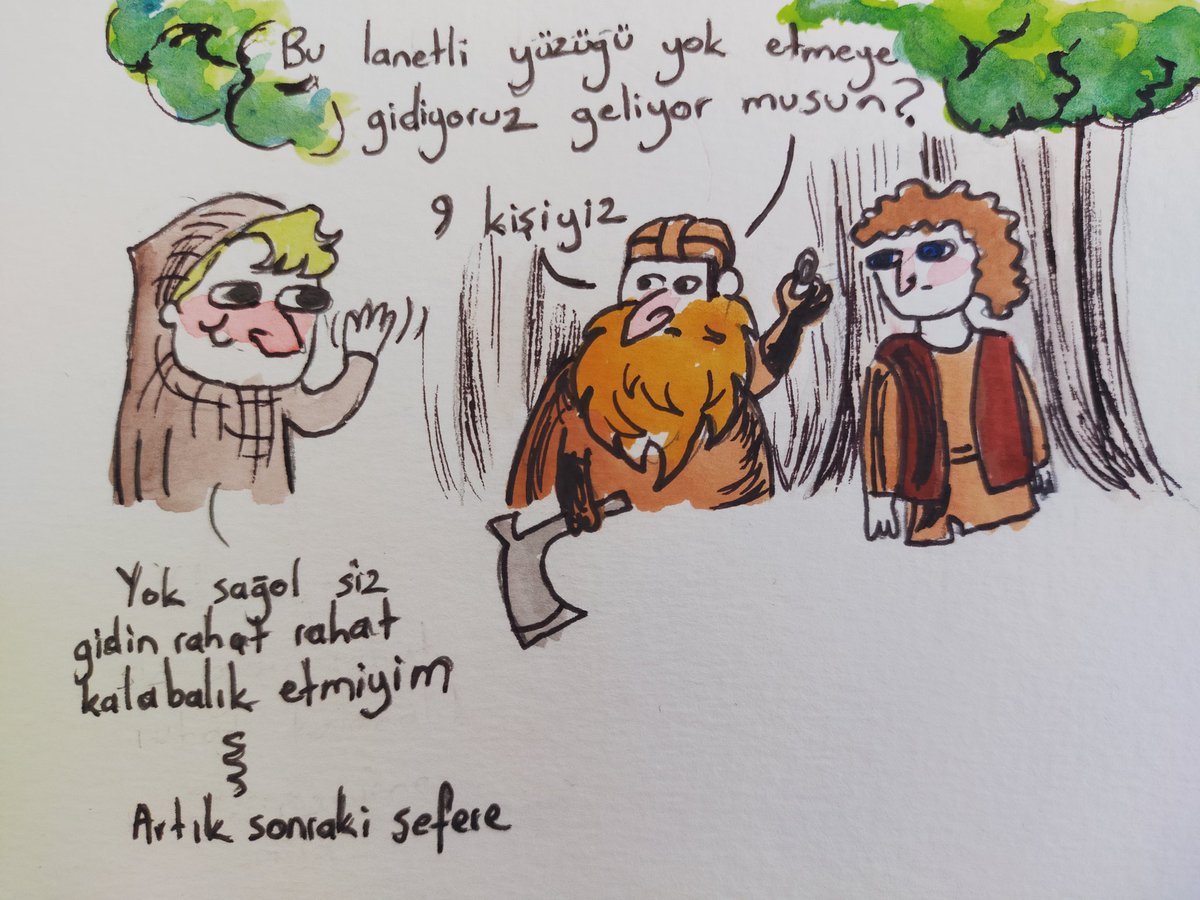 Bu lanetli yüzüğü yok etmeye
gidiyoruz geliyor musun?
9 kişiyiz
Yok sağol siz
gidin rahat rahat
kalabalık etmiyim
Artık sonraki sefere